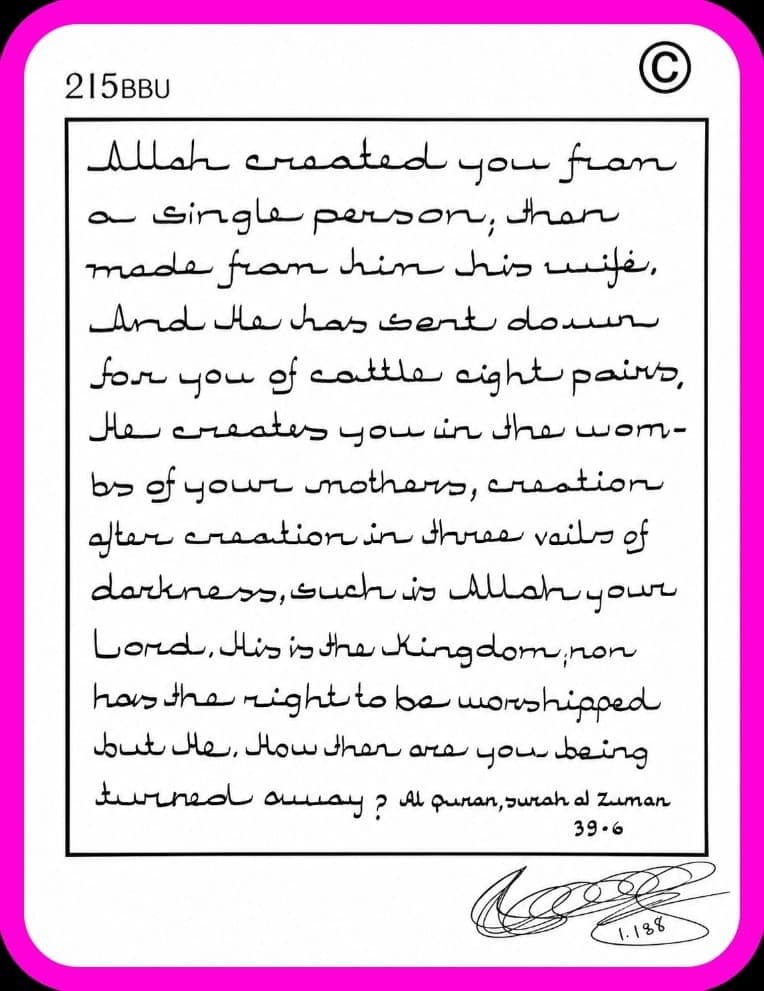 215BBU
©
Allah created you from
a single person; then
made from him his wife.
And He has sent down
for you of cattle eight pairs,
He creates you in the wom-
bs of your mothers, creation
after creation in three veils of
darkness, such is Allah your
Lord. His is the Kingdom; non
has the right to be worshipped
but He. How then are you being
turned away? Al Quran, surah al Zumar
39.6
1.188